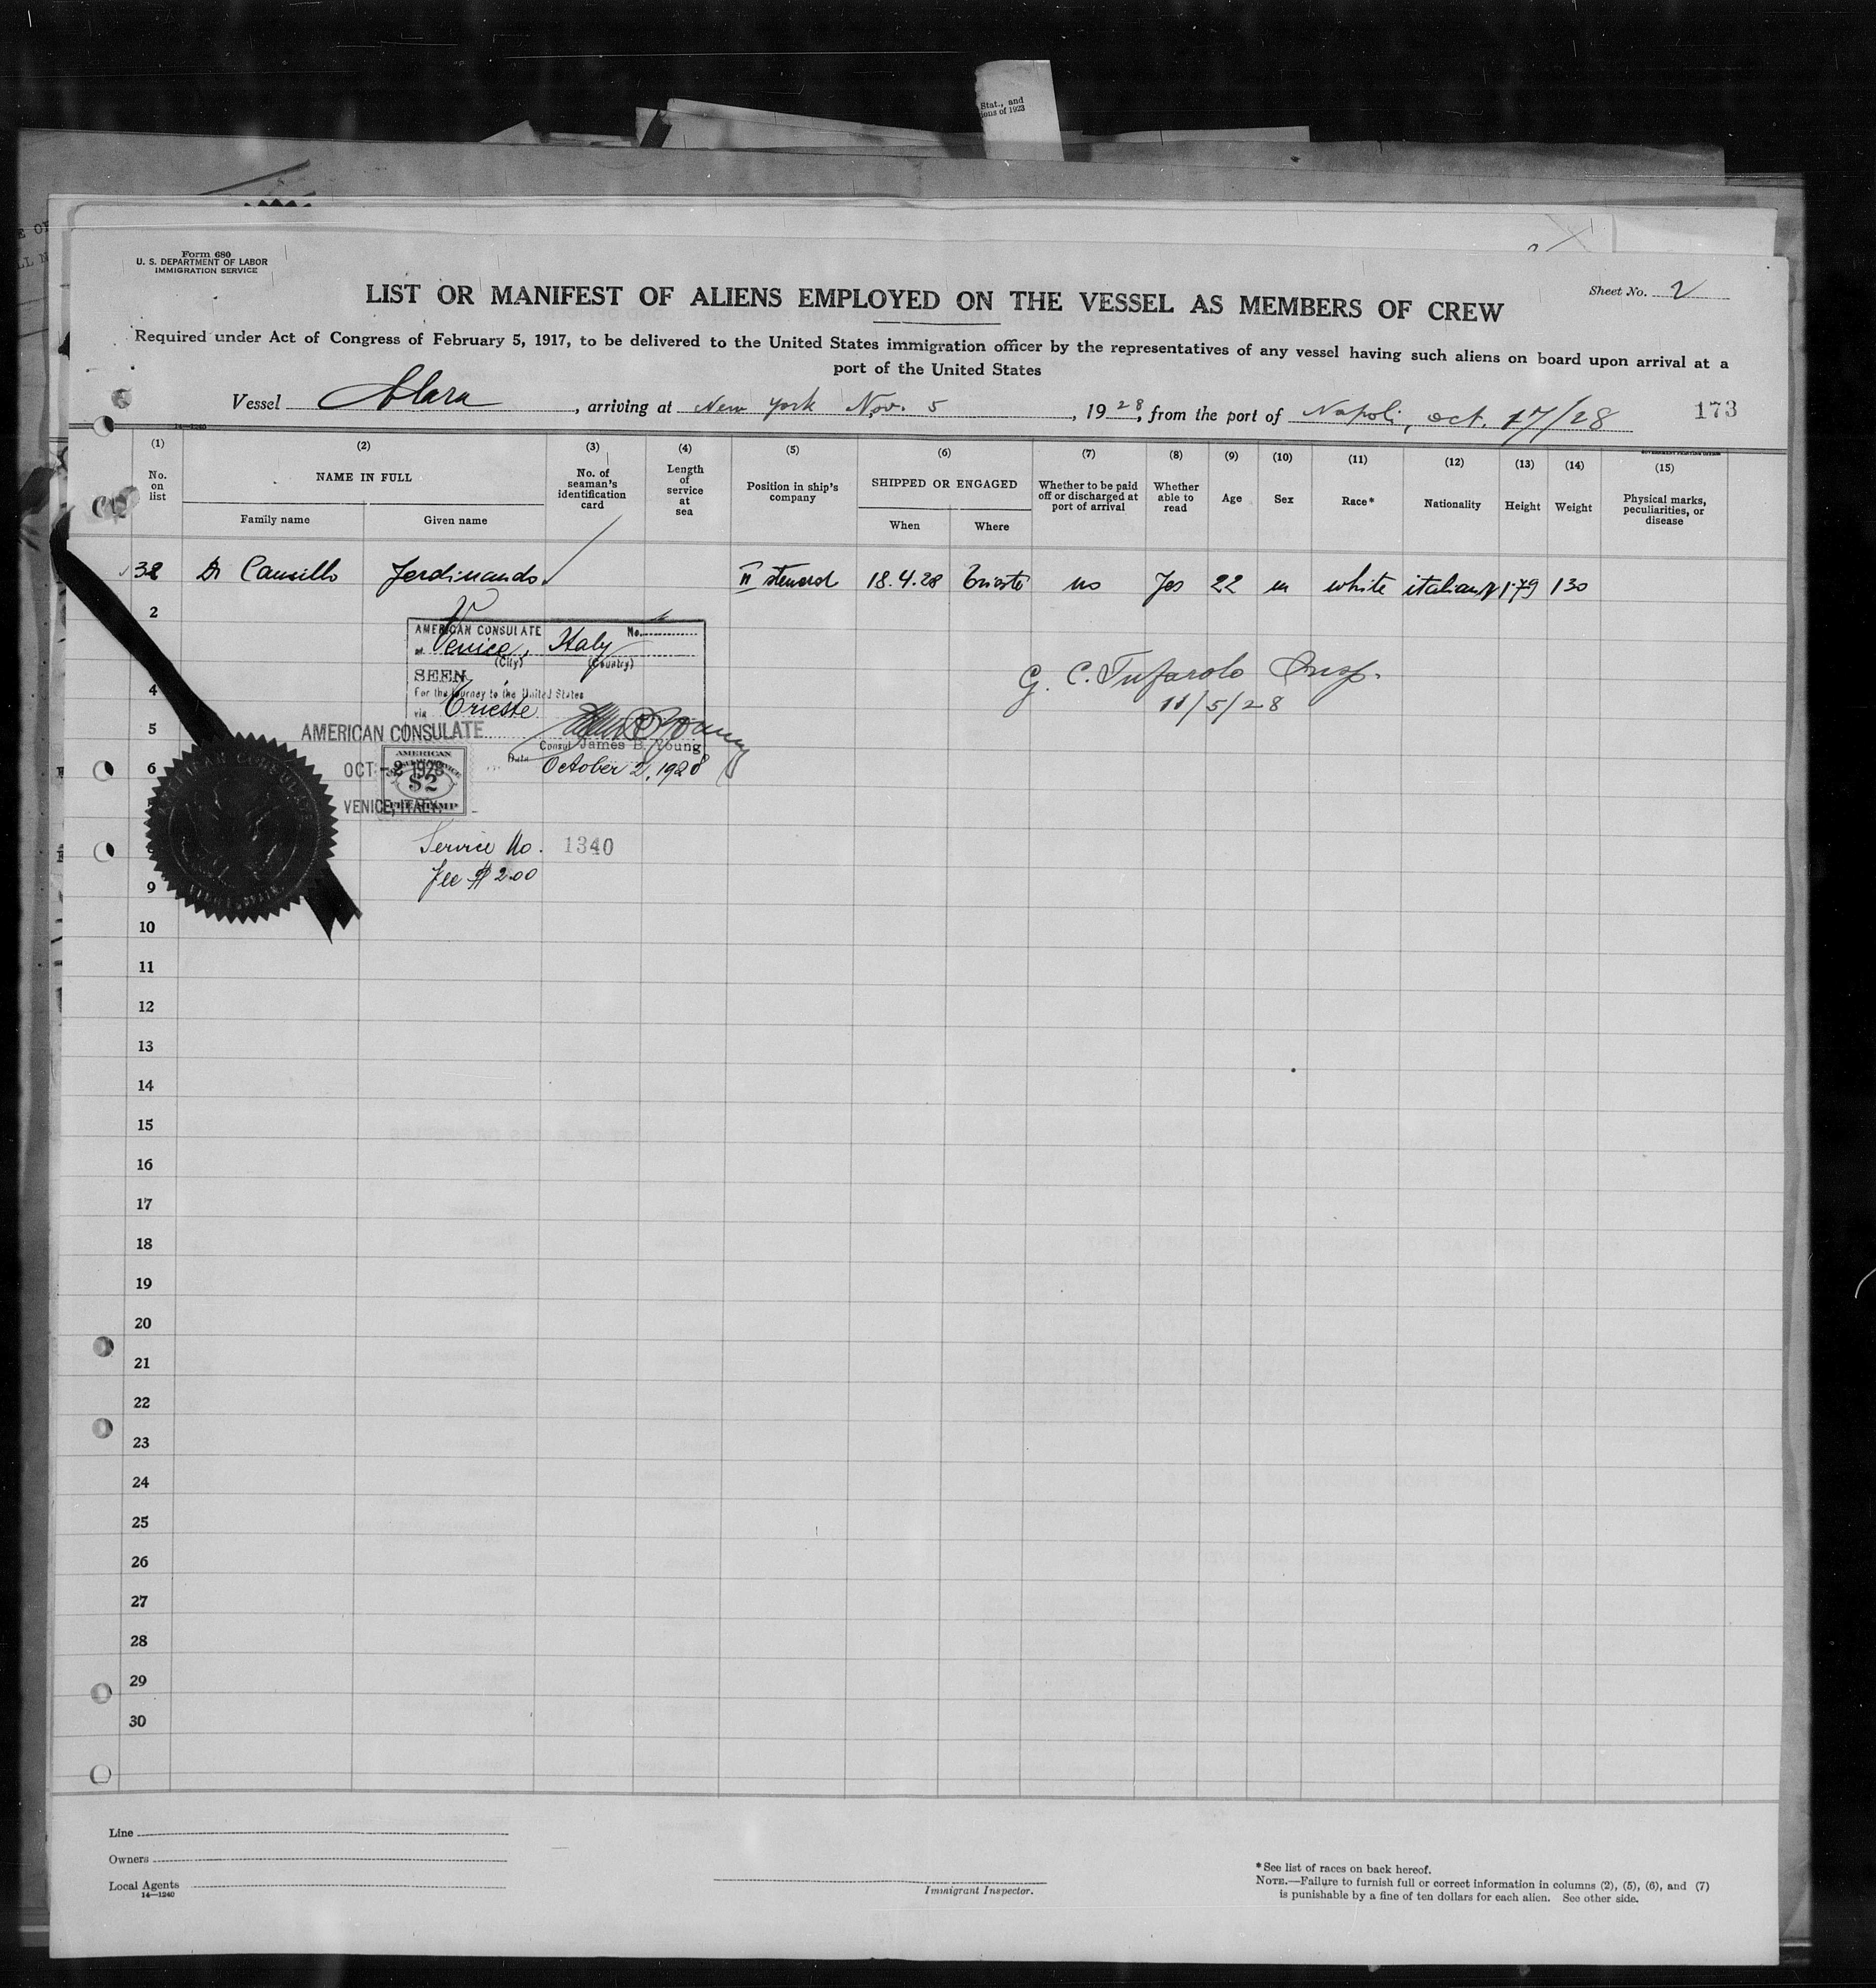 Stat., and
ions of 1923
Form 680
U. S. DEPARTMENT OF LABOR
IMMIGRATION SERVICE
Sheet No. 2
LIST OR MANIFEST OF ALIENS EMPLOYED ON THE VESSEL AS MEMBERS OF CREW
Required under Act of Congress of February 5, 1917, to be delivered to the United States immigration officer by the representatives of any vessel having such aliens on board upon arrival at a
port of the United States
Vessel Clara, arriving at New York Nov. 5, 1928, from the port of Napoli, oct. 17/28
173
14—1240
(1) (2) (3) (4) (5) (6) (7) (8) (9) (10) (11) (12) (13) (14) (15)
No. on list
NAME IN FULL
Family name
Given name
No. of seaman's identification card
Length of service at sea
Position in ship's company
SHIPPED OR ENGAGED
When
Where
Whether to be paid off or discharged at port of arrival
Whether able to read
Age
Sex
Race*
Nationality
Height
Weight
Physical marks, peculiarities, or disease
Di Ferdinando II steward 18.4.28 Trieste no Yes 22 m white italian 179 130
2
AMERICAN CONSULATE No.
at Venice, Italy
(City) (Country)
SEEN
For the journey to the United States
via Trieste
4
G. C. Tufarolo Insp.
11/5/28
5
AMERICAN CONSULATE
Consul James B. Young
Date October 2, 1928
6
OCT -2 1928
VENICE, ITALY
AMERICAN
$2
FEE STAMP
AMERICAN CONSULATE
Service No. 1340
Fee $ 2.00
9
10
11
12
13
14
15
16
17
18
19
20
21
22
23
24
25
26
27
28
29
30
Line
Owners
Local Agents
14—1240
Immigrant Inspector.
*See list of races on back hereof.
NOTE.—Failure to furnish full or correct information in columns (2), (5), (6), and (7)
is punishable by a fine of ten dollars for each alien. See other side.